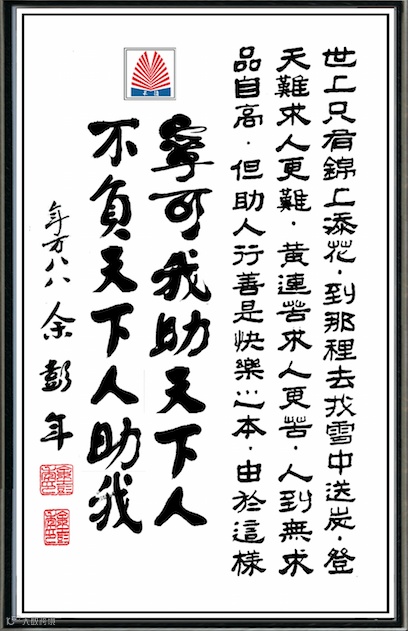 世上只有錦上添花．到那裡去找雪中送炭．登
天難求人更難．黃連苦求人更苦．人到無求
品自高．但助人行善是快樂之本．由於這樣
寧可我助天下人
不負天下人助我
年方八八 余彭年